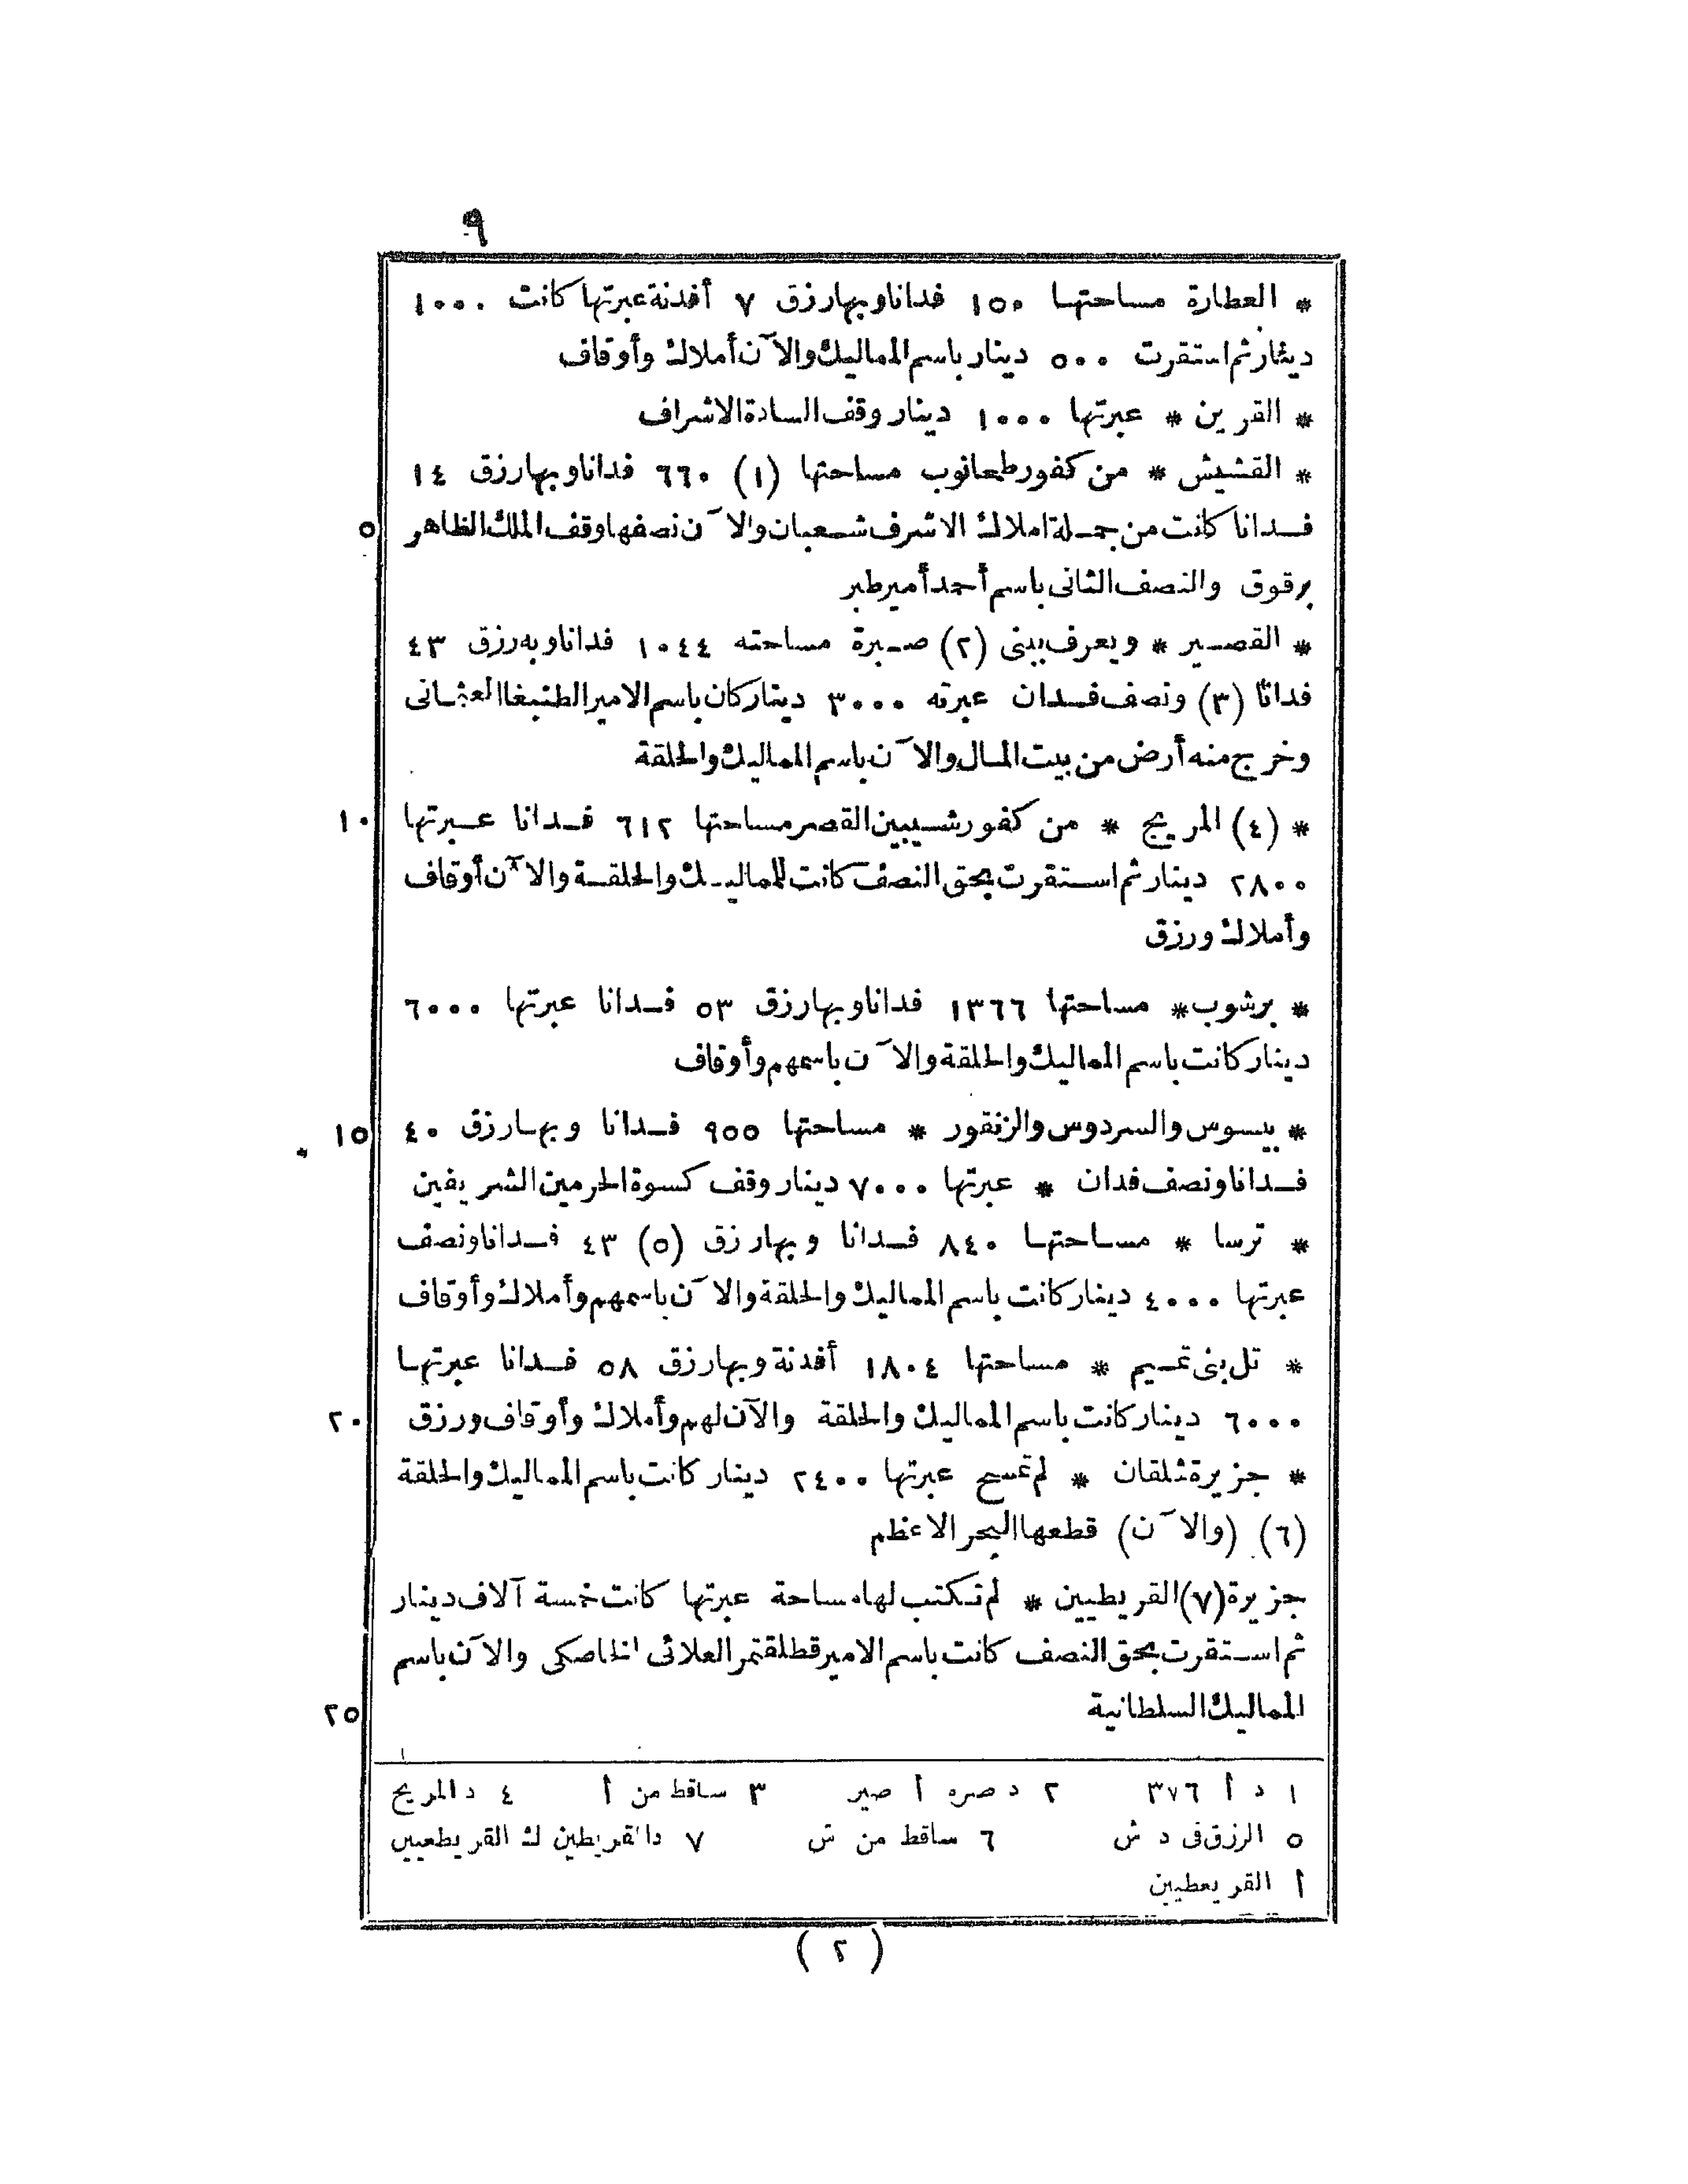 ٩
* العطارة مساحتها ١٥٠ فدانا وبها رزق ٧ أفدنة عبرتها كانت ١٠٠٠
دينار ثم استقرت ٥٠٠ دينار باسم المماليك والآن أملاك وأوقاف
* القرين * عبرتها ١٠٠٠ دينار وقف السادة الاشراف
* القشيش * من كفور طحانوب مساحتها (١) ٦٦٠ فدانا وبها رزق ١٤
فدانا كانت من جملة املاك الاشرف شعبان والآن نصفها وقف الملك الظاهر ٥
برقوق والنصف الثانى باسم أحمد أمير طبر
* القصير * ويعرف ببنى (٢) صبرة مساحته ١٠٤٤ فدانا وبه رزق ٤٣
فدانا (٣) ونصف فدان عبرته ٣٠٠٠ دينار كان باسم الامير الطنبغا العثمانى
وخرج منه أرض من بيت المال والآن باسم المماليك والحلقة
* (٤) المريج * من كفور شيبين القصر مساحتها ٦١٢ فدانا عبرتها ١٠
٢٨٠٠ دينار ثم استقرت بحق النصف كانت للمماليك والحلقة والآن أوقاف
وأملاك ورزق
* برشوب * مساحتها ١٣٦٦ فدانا وبها رزق ٥٣ فدانا عبرتها ٦٠٠٠
دينار كانت باسم المماليك والحلقة والآن باسمهم وأوقاف
* بيسوس والسردوس والزنقور * مساحتها ٩٥٥ فدانا وبها رزق ٤٠ ١٥
فدانا ونصف فدان * عبرتها ٧٠٠٠ دينار وقف كسوة الحرمين الشريفين
* ترسا * مساحتها ٨٤٠ فدانا وبها رزق (٥) ٤٣ فدانا ونصف
عبرتها ٤٠٠٠ دينار كانت باسم المماليك والحلقة والآن باسمهم وأملاك وأوقاف
* تل بنى تميم * مساحتها ١٨٠٤ أفدنة وبها رزق ٥٨ فدانا عبرتها
٦٠٠٠ دينار كانت باسم المماليك والحلقة والآن لهم وأملاك وأوقاف ورزق ٢٠
* جزيرة شلقان * لم تمسح عبرتها ٢٤٠٠ دينار كانت باسم المماليك والحلقة
(٦) (والآن) قطعها البحر الاعظم
جزيرة (٧) القريطيين * لم تكتب لها مساحة عبرتها كانت خمسة آلاف دينار
ثم استقرت بحق النصف كانت باسم الامير قطلقتمر العلائى الخاصكى والآن باسم
المماليك السلطانية ٢٥
١ د أ ٣٧٦ ٢ د صره أ صير ٣ ساقط من أ ٤ د المريح
٥ الرزق فى د ش ٦ ساقط من ش ٧ د القريطين ك القريطعيين
أ القريعطيين
(٢)